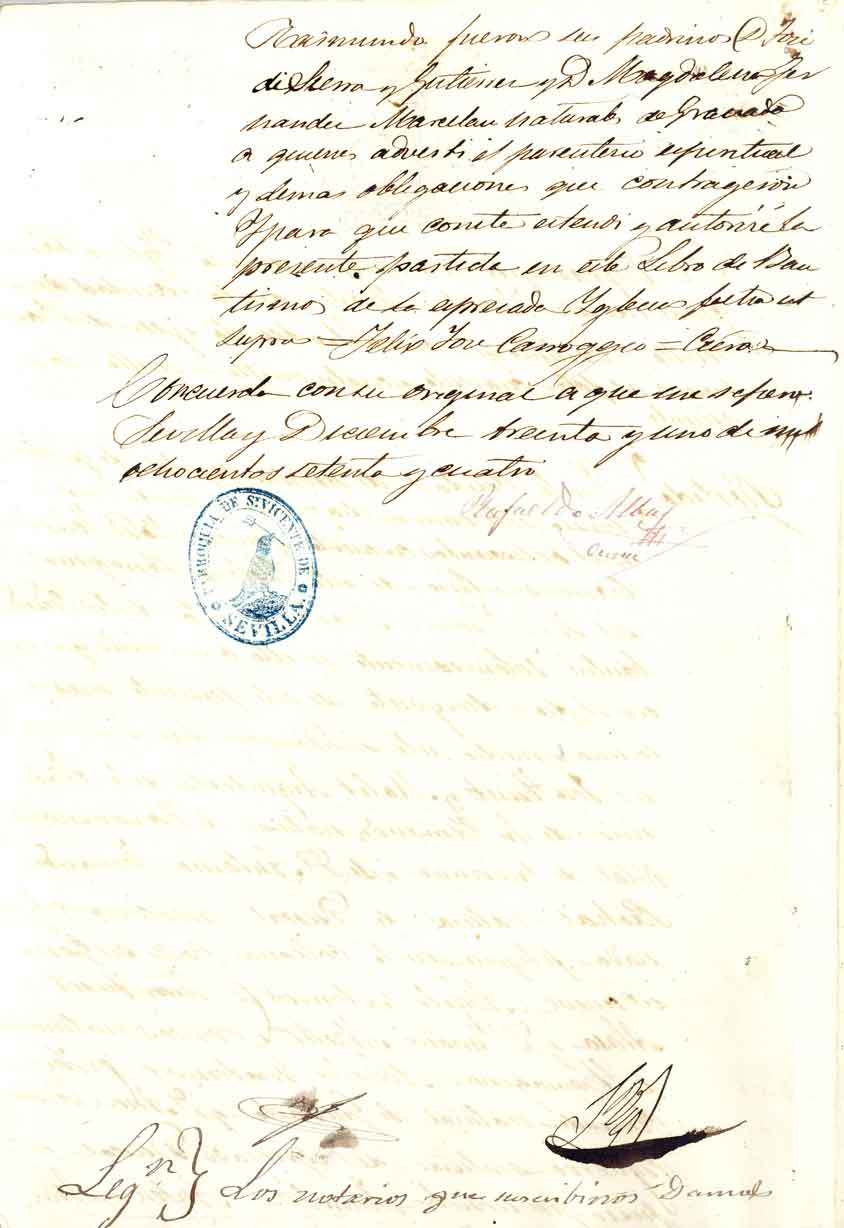 Raimundo fueron sus padrinos D. José
de Sierra y Gutierrez y D Magdalena Fer
nandez Marcelau naturales de Granada
a quienes adverti el parentesco espiritual
y demas obligaciones que contrageron
Y para que conste estendi y autorice la
presente partida en este Libro de Bau
tismos de la espresada Yglesia fecha ut
supra = Felix José Carroggio = Cura =
Concuerda con su original a que me refiero.
Sevilla y Diciembre treinta y uno de mil
ochocientos setenta y cuatro
Rafael de Alba
Cura
PARROQUIA DE Sn. VICENTE DE
SEVILLA.
Legn. Los notarios que suscribimos Damos